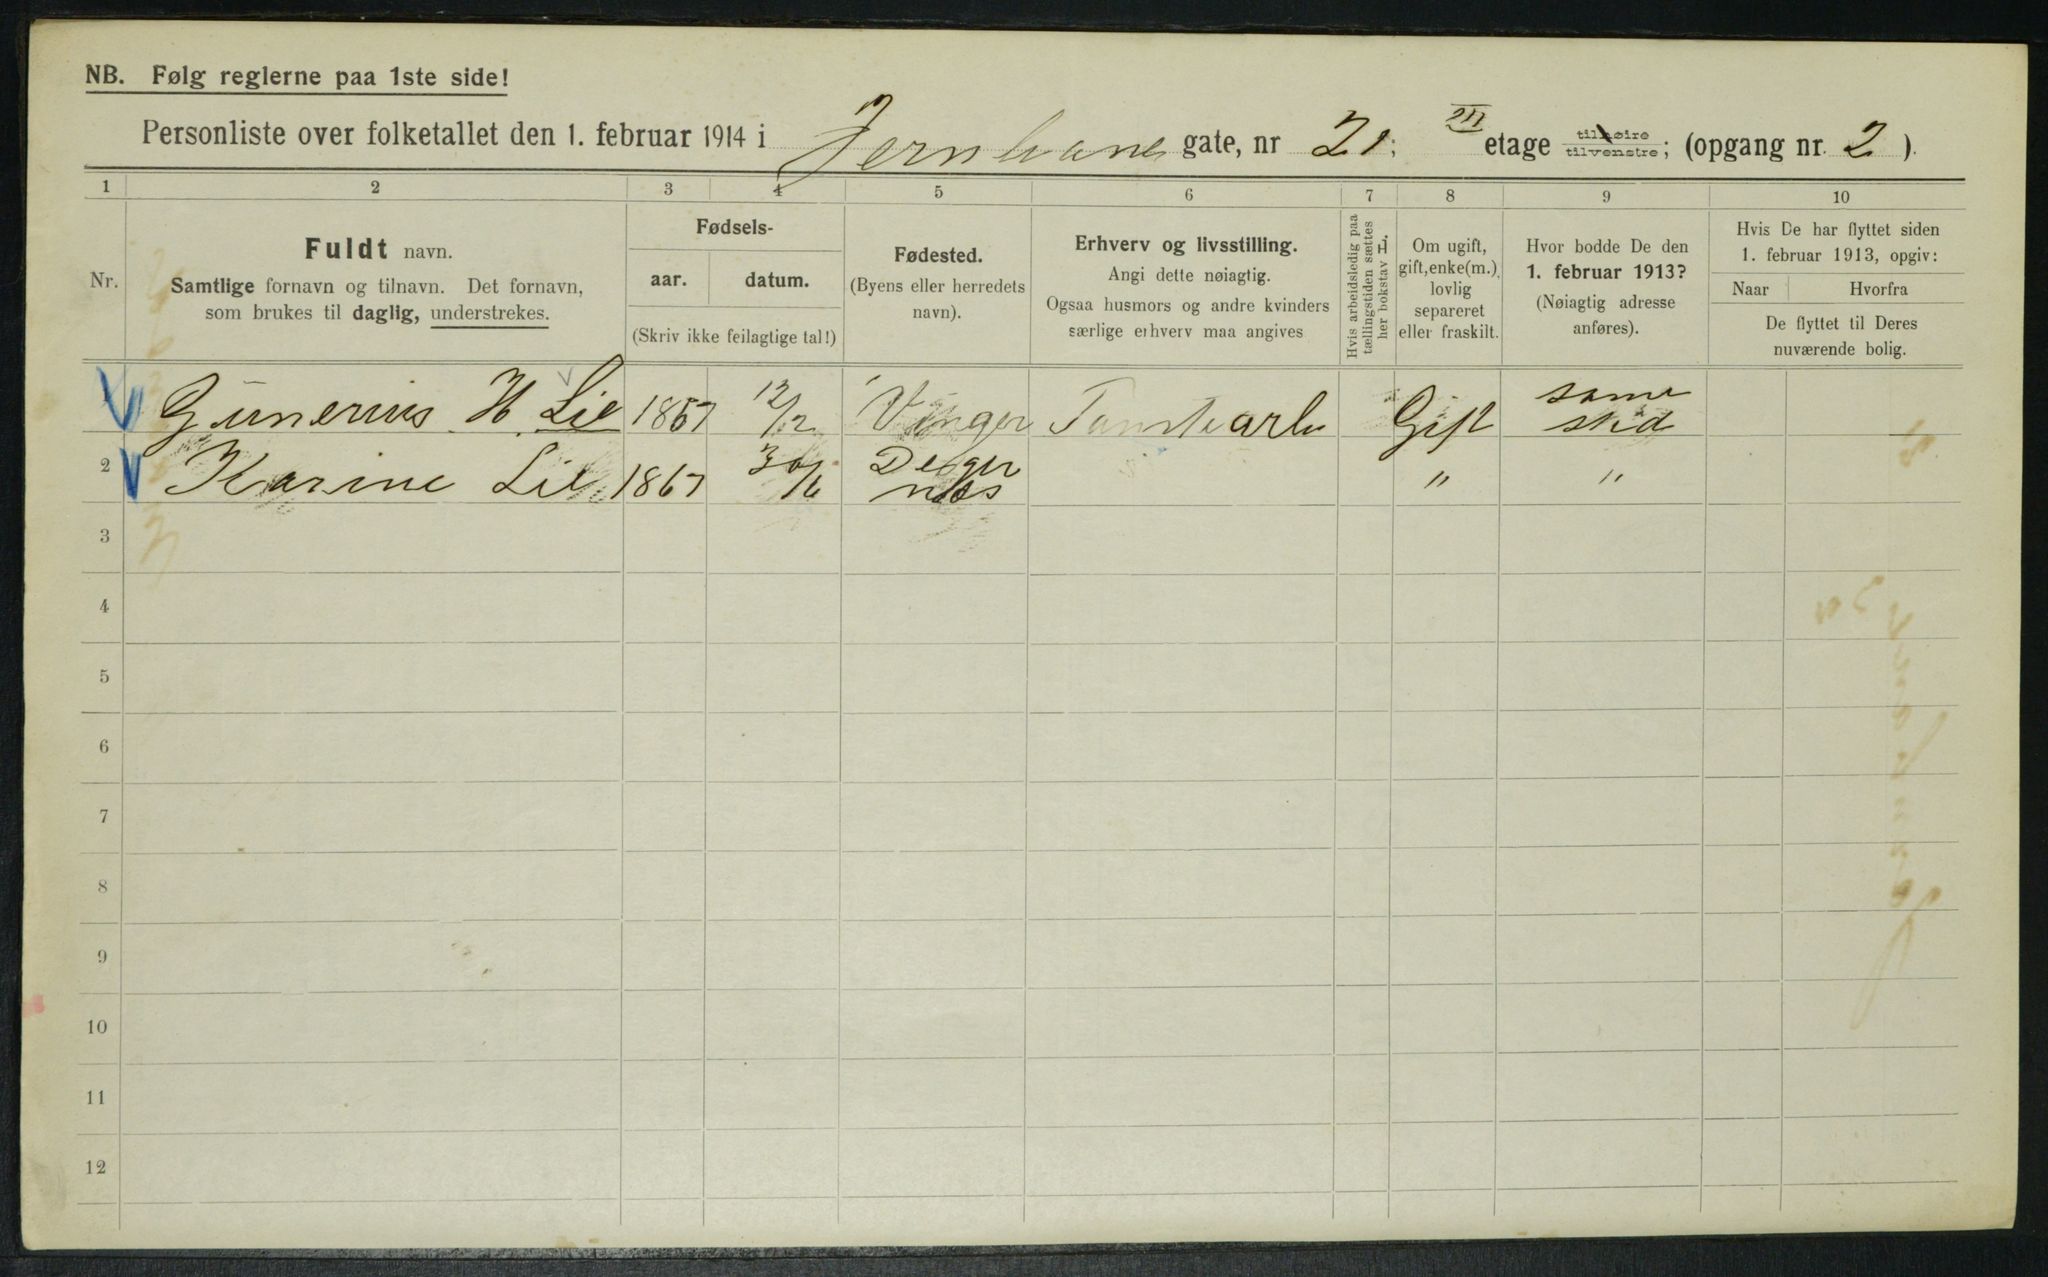 NB. Følg reglerne paa 1ste side!
Personliste over folketallet den 1. februar 1914 i Jernbane gate, nr 21; III etage tilhøire tilvenstre; (opgang nr. 2).
1 2 3 4 5 6 7 8 9 10
Nr.
Fuldt navn.
Samtlige fornavn og tilnavn. Det fornavn,
som brukes til daglig, understrekes.
Fødsels-
aar. datum.
(Skriv ikke feilagtige tal!)
Fødested.
(Byens eller herredets
navn).
Erhverv og livsstilling.
Angi dette nøiagtig.
Ogsaa husmors og andre kvinders
særlige erhverv maa angives
Hvis arbeidsledig paa
tællingstiden sættes
her bokstav L.
Om ugift,
gift, enke(m.),
lovlig
separeret
eller fraskilt.
Hvor bodde De den
1. februar 1913?
(Nøiagtig adresse
anføres).
Hvis De har flyttet siden
1. februar 1913, opgiv:
Naar Hvorfra
De flyttet til Deres
nuværende bolig.
Gunerius H. Lie 1857 12/12 Vinger Gift samme
sted
2 Karine Lie 1867 30/6 Deger
næs " "
3
4
5
6
7
8
9
10
11
12